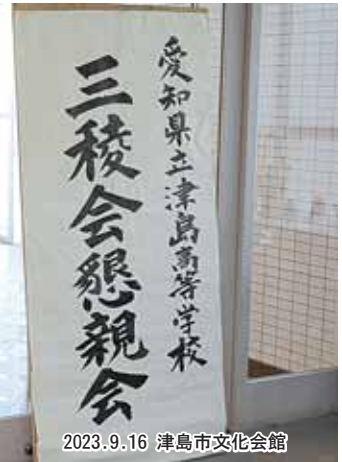 愛知県立津島高等学校
三稜会懇親会
2023.9.16 津島市文化会館